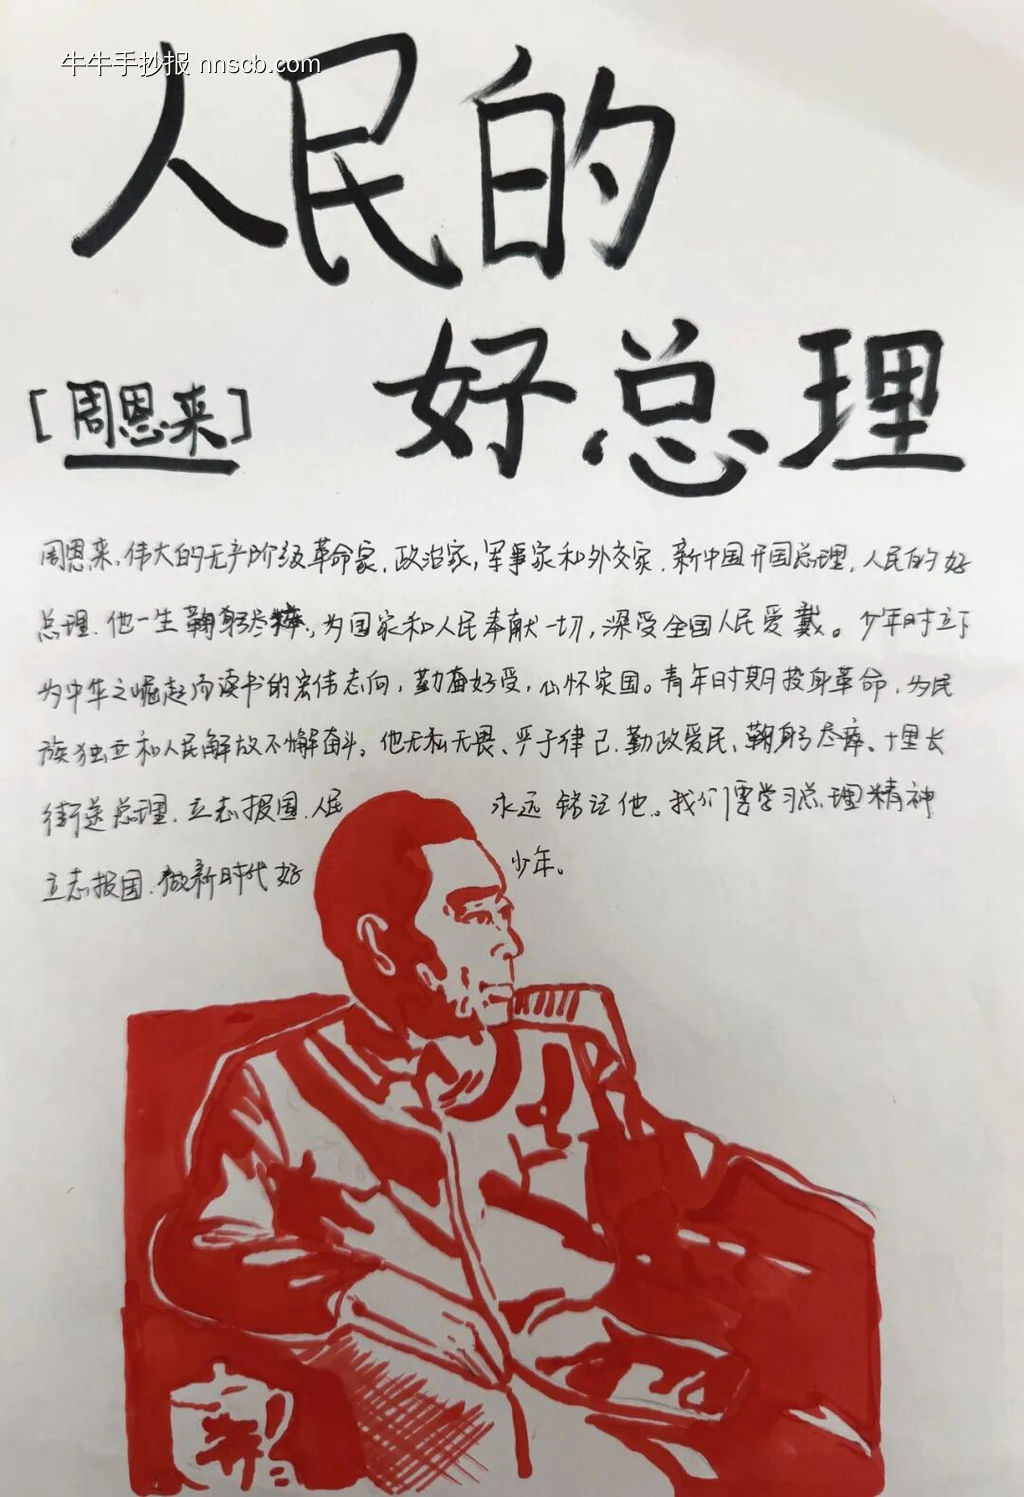 牛牛手抄报 nnscb.com
人民的
好总理
[周恩来]
周恩来,伟大的无产阶级革命家,政治家,军事家和外交家,新中国开国总理,人民的好
总理.他一生鞠躬尽瘁,为国家和人民奉献一切,深受全国人民爱戴。少年时立下
为中华之崛起而读书的宏伟志向,勤奋好受,心怀家国。青年时期投身革命,为民
族独立和人民解放不懈奋斗。他无私无畏、严于律己,勤政爱民、鞠躬尽瘁、十里长
街送总理,立志报国.人民 永远铭记他。我们要学习总理精神
立志报国.做新时代好 少年。